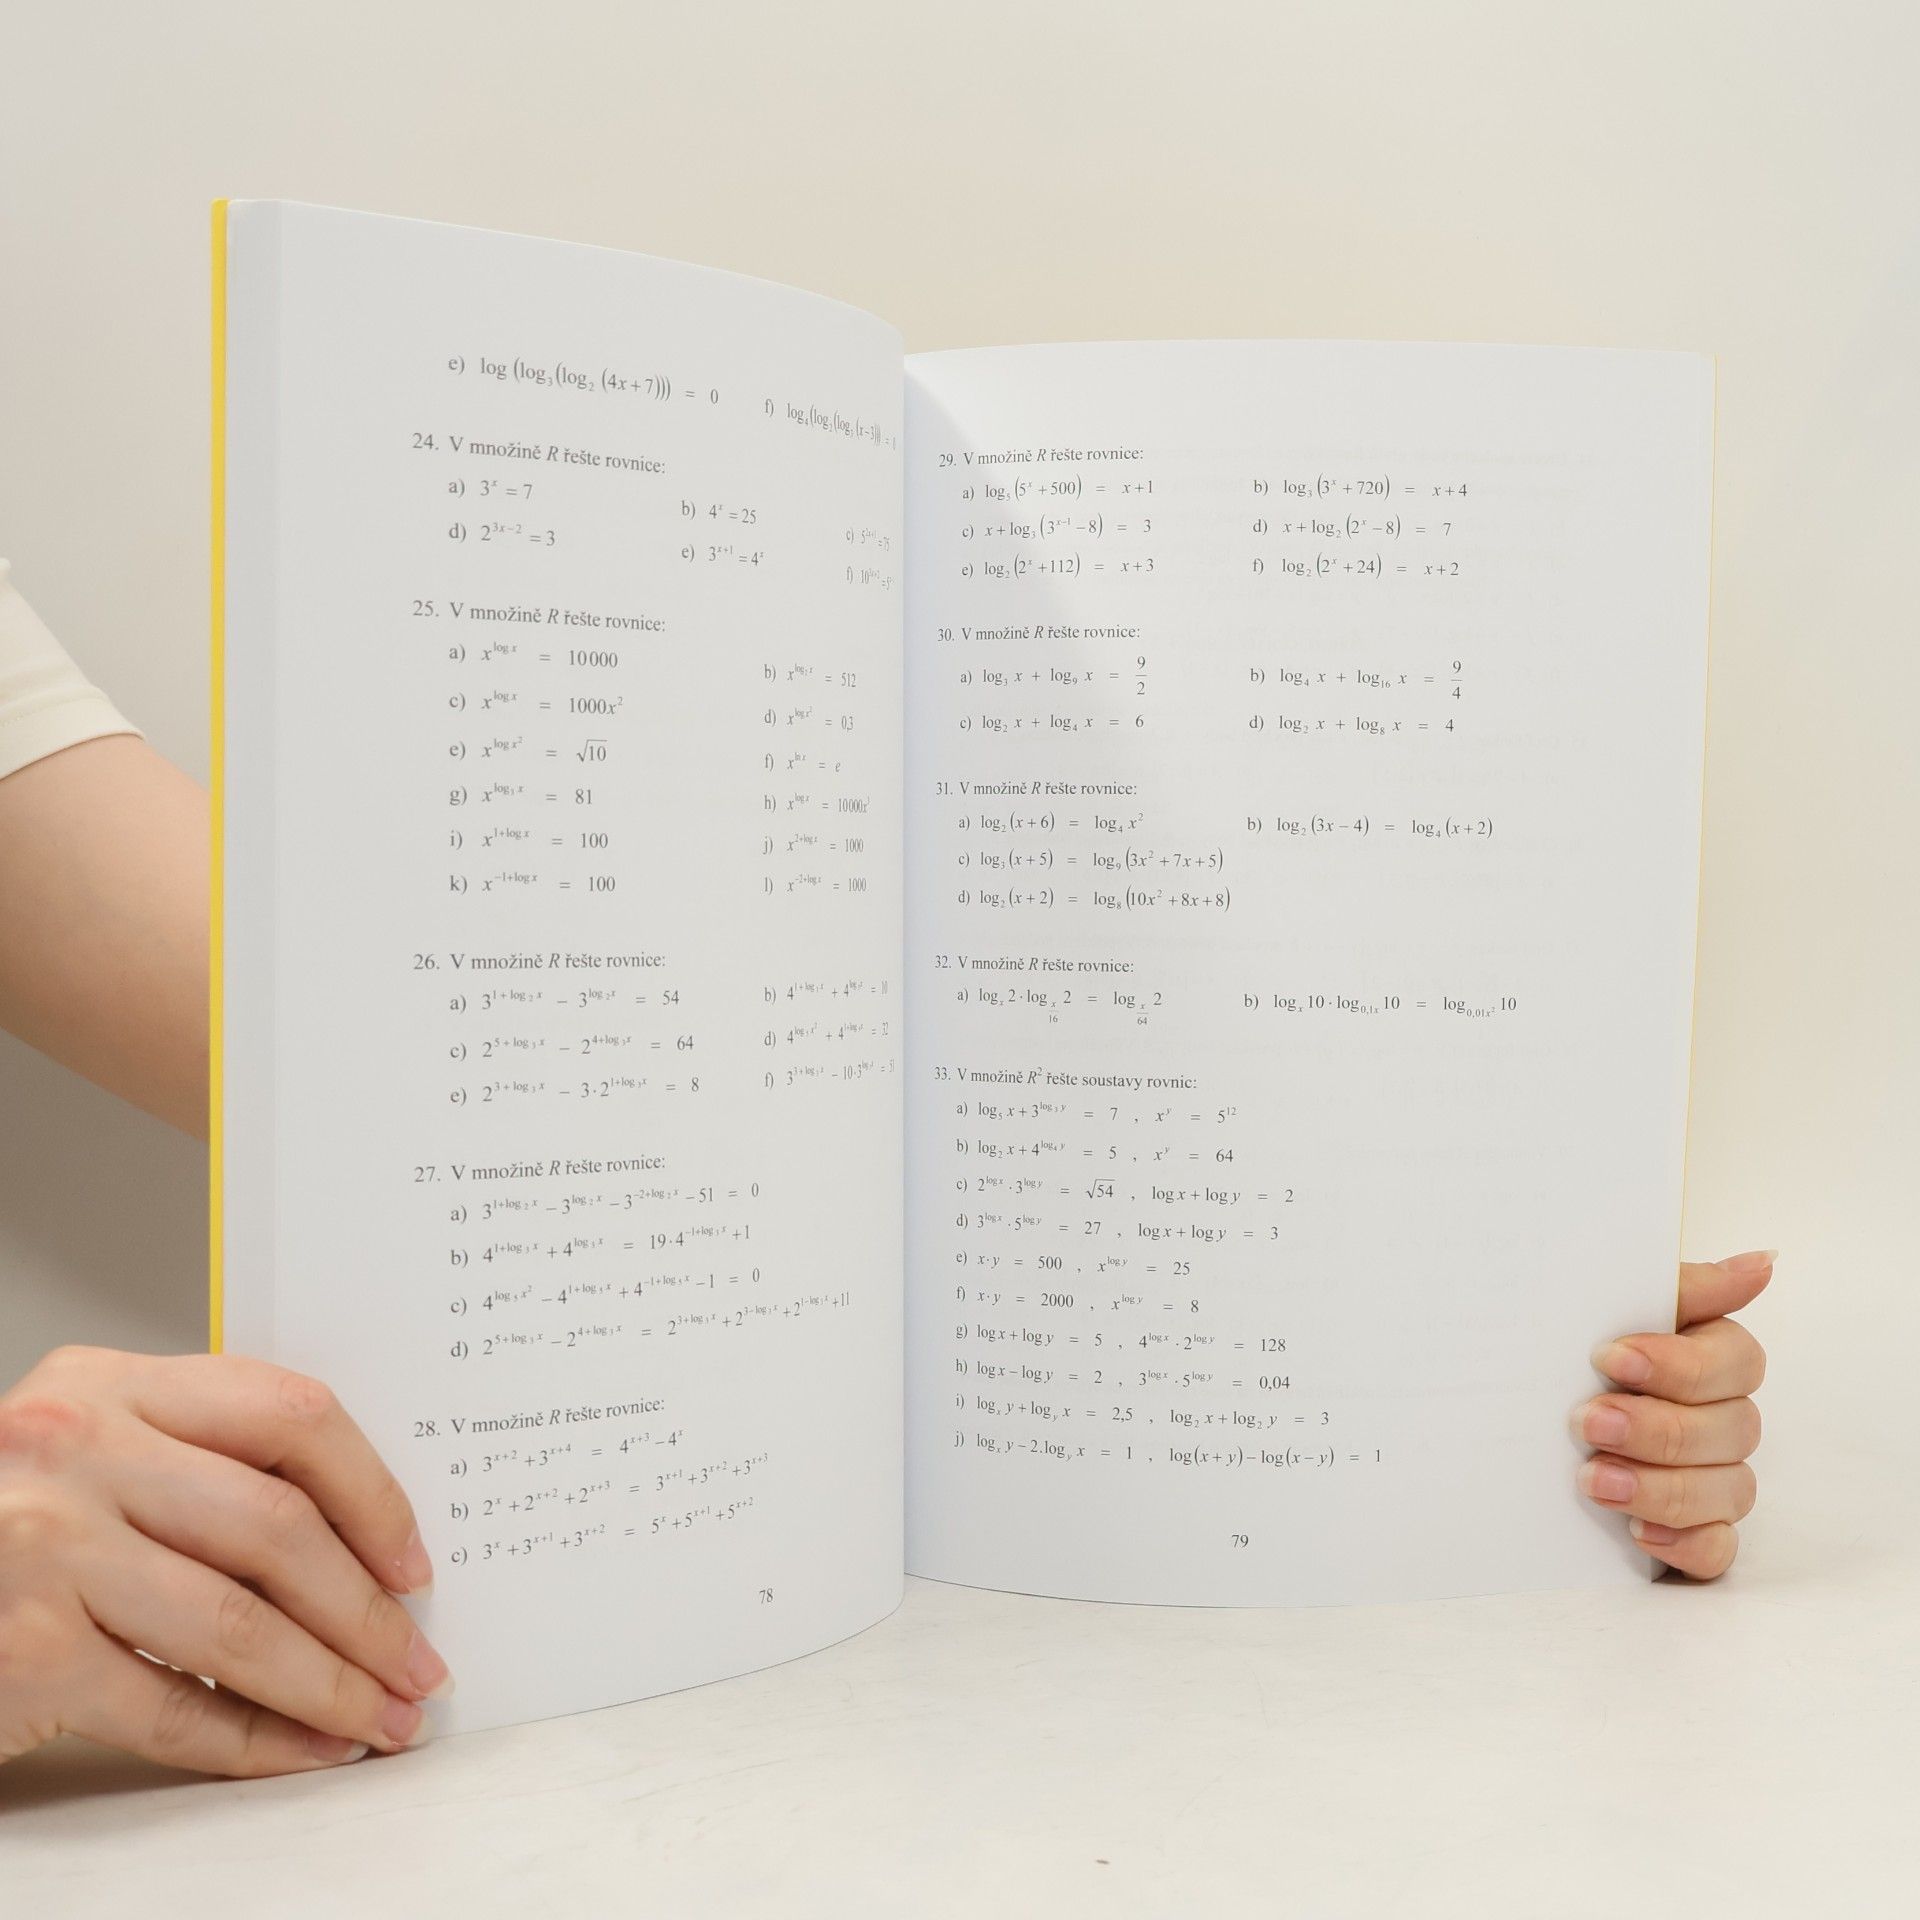 e) log (log₃(log₂ (4x+7))) = 0 f) log₄(log₂(log₃ (x−3))) =
24. V množině R řešte rovnice:
a) 3ˣ = 7 b) 4ˣ = 25 c) 5²ˣ⁺¹ = 75
d) 2³ˣ⁻² = 3 e) 3ˣ⁺¹ = 4ˣ f)
25. V množině R řešte rovnice:
a) x^(log x) = 10000 b) x^(log₂ x) = 512
c) x^(log x) = 1000x² d) x^(log x²) = 0,3
e) x^(log x²) = √10 f) x^(ln x) = e
g) x^(log₃ x) = 81 h) x^(log x) = 10000x³
i) x^(1+log x) = 100 j) x^(2+log x) = 1000
k) x^(−1+log x) = 100 l) x^(−2+log x) = 1000
26. V množině R řešte rovnice:
a) 3^(1+log₂ x) − 3^(log₂ x) = 54 b) 4^(1+log₃ x) + 4^(log₃ x) = 10
c) 2^(5+log₃ x) − 2^(4+log₃ x) = 64 d) 4^(log₃ x²) + 4^(1+log₃ x) = 32
e) 2^(3+log₃ x) − 3·2^(1+log₃ x) = 8 f) 3^(3+log₃ x) − 10·3^(log₃ x) =
27. V množině R řešte rovnice:
a) 3^(1+log₂ x) − 3^(log₂ x) − 3^(−2+log₂ x) − 51 = 0
b) 4^(1+log₃ x) + 4^(log₃ x) = 19·4^(−1+log₃ x) + 1
c) 4^(log₅ x²) − 4^(1+log₅ x) + 4^(−1+log₅ x) − 1 = 0
d) 2^(5+log₃ x) − 2^(4+log₃ x) = 2^(3+log₃ x) + 2^(3−log₃ x) + 2^(1−log₃ x) + 11
28. V množině R řešte rovnice:
a) 3ˣ⁺² + 3ˣ⁺⁴ = 4ˣ⁺³ − 4ˣ
b) 2ˣ + 2ˣ⁺² + 2ˣ⁺³ = 3ˣ⁺¹ + 3ˣ⁺² + 3ˣ⁺³
c) 3ˣ + 3ˣ⁺¹ + 3ˣ⁺² = 5ˣ + 5ˣ⁺¹ + 5ˣ⁺²
78
29. V množině R řešte rovnice:
a) log₅ (5ˣ + 500) = x + 1 b) log₃ (3ˣ + 720) = x + 4
c) x + log₃ (3ˣ⁻¹ − 8) = 3 d) x + log₂ (2ˣ − 8) = 7
e) log₂ (2ˣ + 112) = x + 3 f) log₂ (2ˣ + 24) = x + 2
30. V množině R řešte rovnice:
a) log₃ x + log₉ x = 9/2 b) log₄ x + log₁₆ x = 9/4
c) log₂ x + log₄ x = 6 d) log₂ x + log₈ x = 4
31. V množině R řešte rovnice:
a) log₂ (x + 6) = log₄ x² b) log₂ (3x − 4) = log₄ (x + 2)
c) log₃ (x + 5) = log₉ (3x² + 7x + 5)
d) log₂ (x + 2) = log₈ (10x² + 8x + 8)
32. V množině R řešte rovnice:
a) logₓ 2 · log_(x/16) 2 = log_(x/64) 2 b) logₓ 10 · log_(0,1x) 10 = log_(0,01x²) 10
33. V množině R² řešte soustavy rovnic:
a) log₅ x + 3^(log₃ y) = 7 , x^y = 5¹²
b) log₂ x + 4^(log₄ y) = 5 , x^y = 64
c) 2^(log x) · 3^(log y) = √54 , log x + log y = 2
d) 3^(log x) · 5^(log y) = 27 , log x + log y = 3
e) x·y = 500 , x^(log y) = 25
f) x·y = 2000 , x^(log y) = 8
g) log x + log y = 5 , 4^(log x) · 2^(log y) = 128
h) log x − log y = 2 , 3^(log x) · 5^(log y) = 0,04
i) logₓ y + log_y x = 2,5 , log₂ x + log₂ y = 3
j) logₓ y − 2.log_y x = 1 , log(x + y) − log(x − y) = 1
79